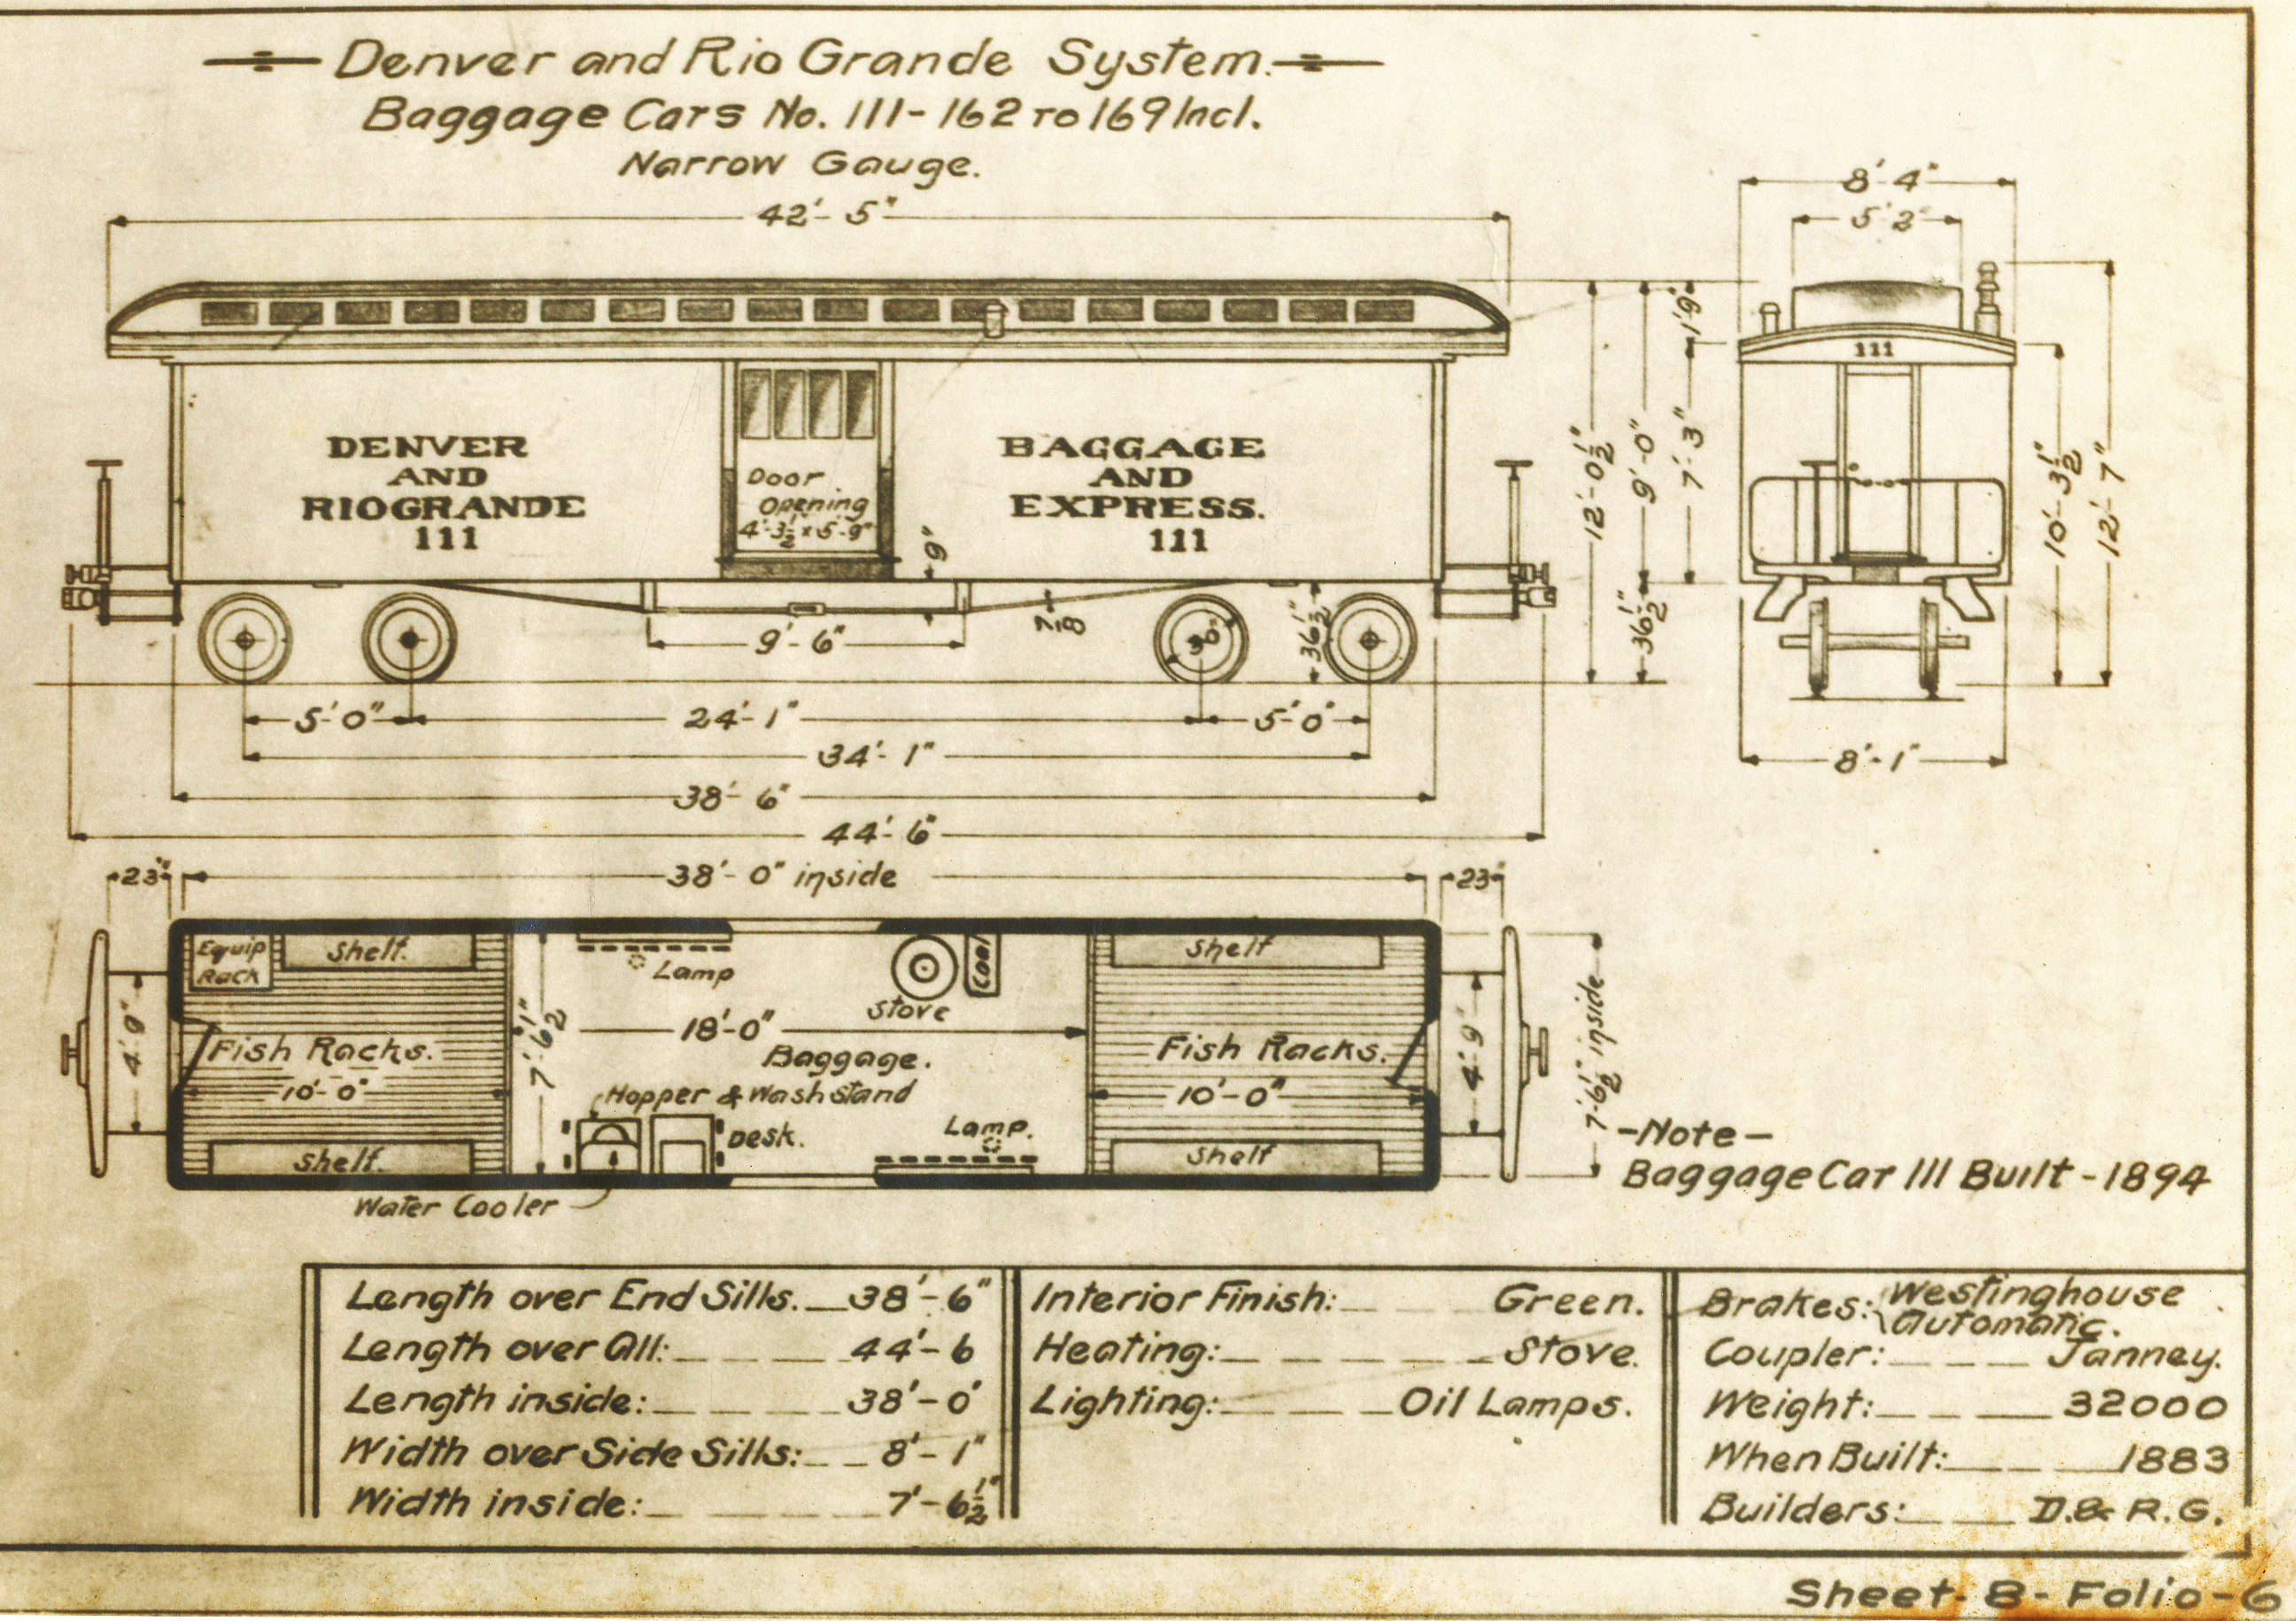 Denver and Rio Grande System.
Baggage Cars No. 111-162 TO 169 Incl.
Narrow Gauge.
42'-5"
8'-4"
5'2"
DENVER
AND
RIO GRANDE
111
Door
Opening
4'-3½" x 5'-9"
BAGGAGE
AND
EXPRESS.
111
9"
9'-6"
7/8
36½"
12'-0½"
9'-0"
36½"
1'9"
7'-3"
111
10'-3½"
12'-7"
8'-1"
5'-0"
24'-1"
5'-0"
34'-1"
38'-6"
44'-6"
23"
38'-0" inside
23"
Equip
Rack
Shelf.
Lamp
Stove
Coal
Shelf
4'-9"
Fish Racks.
10'-0"
7'-6½"
18'-0"
Baggage.
Fish Racks.
10'-0"
4'-9"
7'-6½" inside
Hopper & Washstand
Desk.
Lamp.
Shelf.
Shelf
Water Cooler
-Note-
Baggage Car 111 Built-1894
Length over End Sills. 38'-6"
Length over All: 44'-6
Length inside: 38'-0'
Width over Side Sills: 8'-1"
Width inside: 7'-6½"
Interior Finish: Green.
Heating: Stove.
Lighting: Oil Lamps.
Brakes: Westinghouse
Automatic.
Coupler: Janney.
Weight: 32000
When Built: 1883
Builders: D.& R.G.
Sheet-8-Folio-6